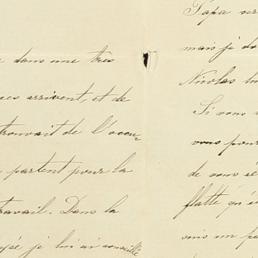 dans une très
arrivent, et de
trouvait de l'occu-
partent pour la
travail. Dans la
je lui ai conseillé
Papa
mais je do
Nicolas
Si vous
vous pour
de vous
flatte qu'
vous un pe